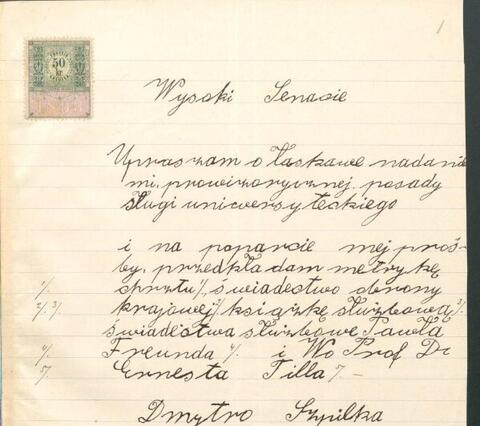 1
50
Wysoki Senacie
Upraszam o łaskawe nadanie
mi, prowizorycznej posady
sługi uniwersyteckiego
i na poparcie mej proś-
by, przedkładam metrykę
1/. chrztu 1/, świadectwo obrony
2/. 3/. krajowej 2/ książkę służbową 3/.
świadectwa służbowe Pawła
4/. Freunda 4/. i Wo Prof Dr
5/. Ernesta Tilla 5/. –
Dmytro Szpilka